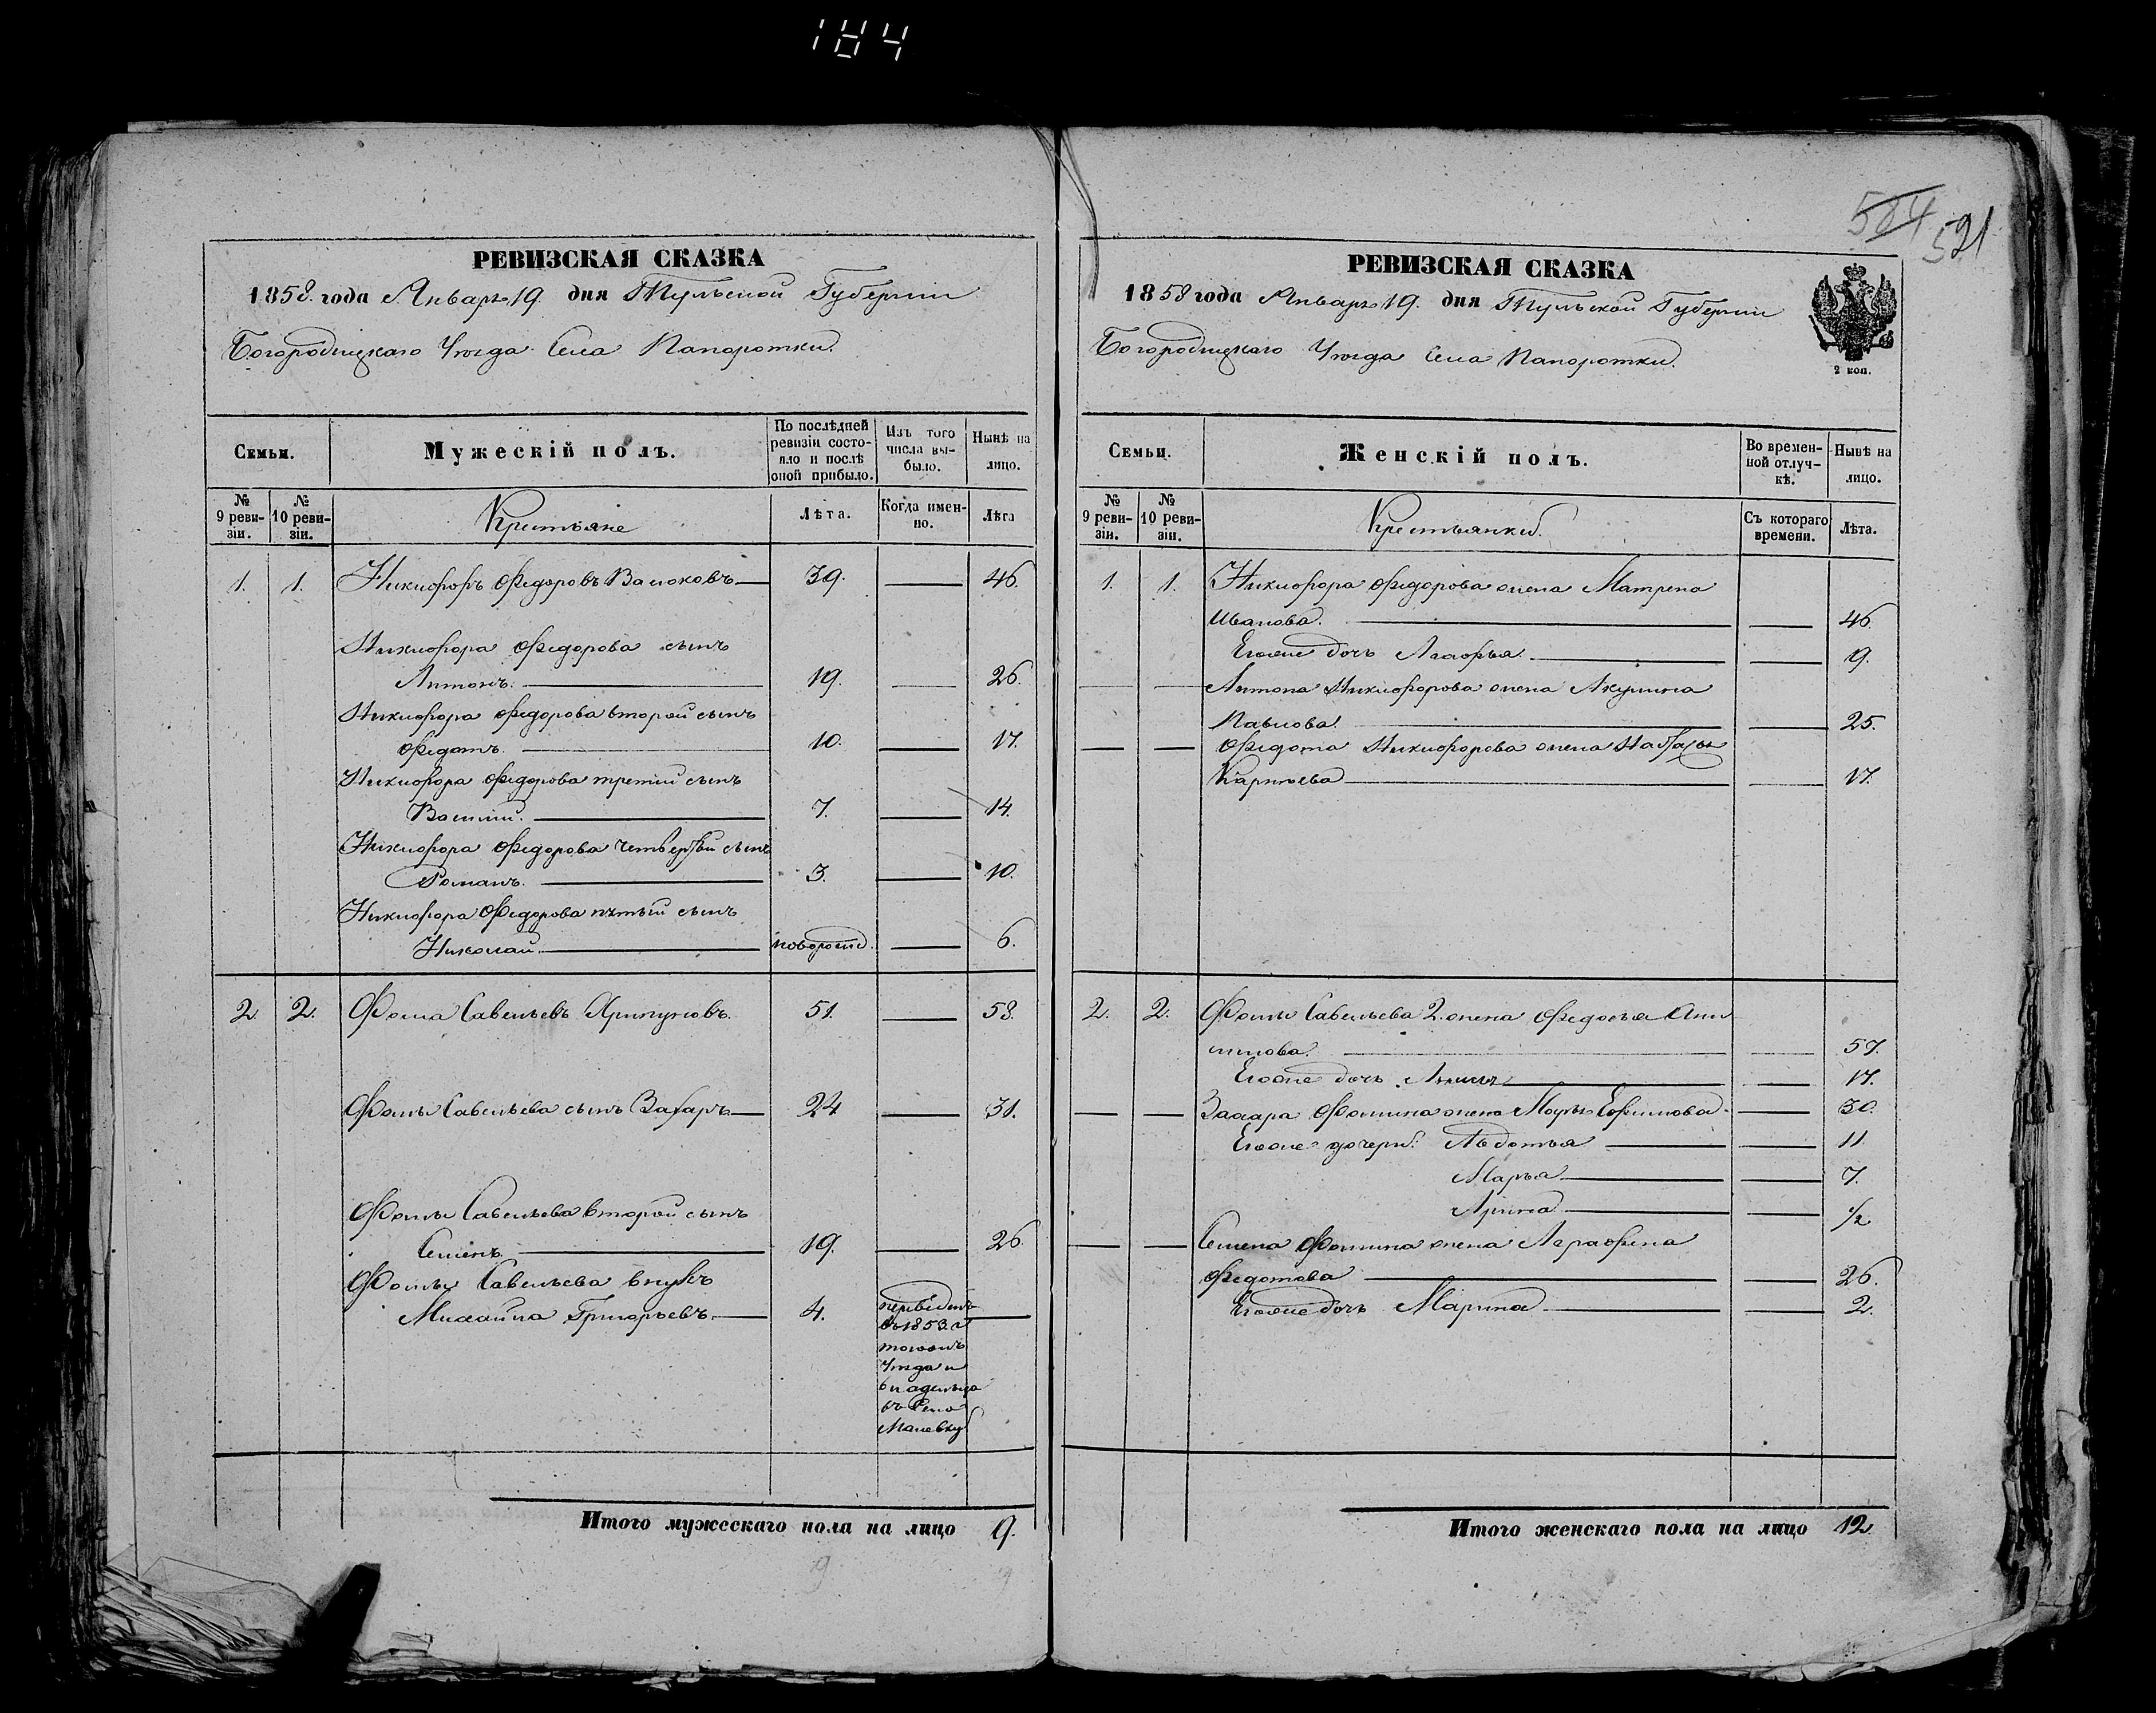 184
584 591
РЕВИЗСКАЯ СКАЗКА
1858. года Январь 19. дня Тульской Губернии
Богородицкаго Уѣзда Села Папоротки.
Семьи.
Мужескій полъ.
По послѣдней ревизіи состояло и послѣ оной прибыло.
Изъ того числа выбыло.
Нынѣ на лицо.
№ 9 ревизіи.
№ 10 ревизіи.
Крестьяне
Лѣта.
Когда именно.
Лѣта
1. 1. Никифоръ Федоровъ 39. 46.
Никифора Федорова сынъ
Антонъ. 19. 26.
Никифора Федорова второй сынъ
Федотъ. 10. 17.
Никифора Федорова третій сынъ
Василій. 7. 14.
Никифора Федорова четвертый сынъ
Романъ. 3. 10.
Никифора Федорова пятый сынъ
Николай новорожд. 6.
2. 2. Фома Савельевъ 51. 58.
Фомы Савельева сынъ Захаръ 24 31.
Фомы Савельева второй сынъ
Семенъ. 19. 26.
Фомы Савельева внукъ
Михайла Григорьевъ 4.
переведенъ
въ 1853. г.
тогожъ
Уѣзда и
владельца
въ Село
Итого мужескаго пола на лицо 9.
РЕВИЗСКАЯ СКАЗКА
1858 года Январь 19. дня Тульской Губернии
Богородицкаго Уѣзда Села Папоротки.
2 коп.
Семьи.
Женскій полъ.
Во временной отлучкѣ.
Нынѣ на лицо.
№ 9 ревизіи.
№ 10 ревизіи.
Крестьянки.
Съ котораго времени.
Лѣта.
1. 1. Никифора Федорова жена Матрена
Иванова. 46.
Егоже дочь Агафья. 9.
Антона Никифорова жена Акулина
Павлова. 25.
Федота Никифорова жена Наталья
Карпѣева 17.
2. 2. Фомы Савельева 2. жена Федосья Ани
симова. 57.
Егоже дочь 17.
Захара Фомина жена Ефимова. 30.
Егоже дочери: Авдотья 11.
Марья 7.
Арина 1/2
Семена Фомина жена Аграфена
Федотова 26.
Егоже дочь Марина 2.
Итого женскаго пола на лицо 12